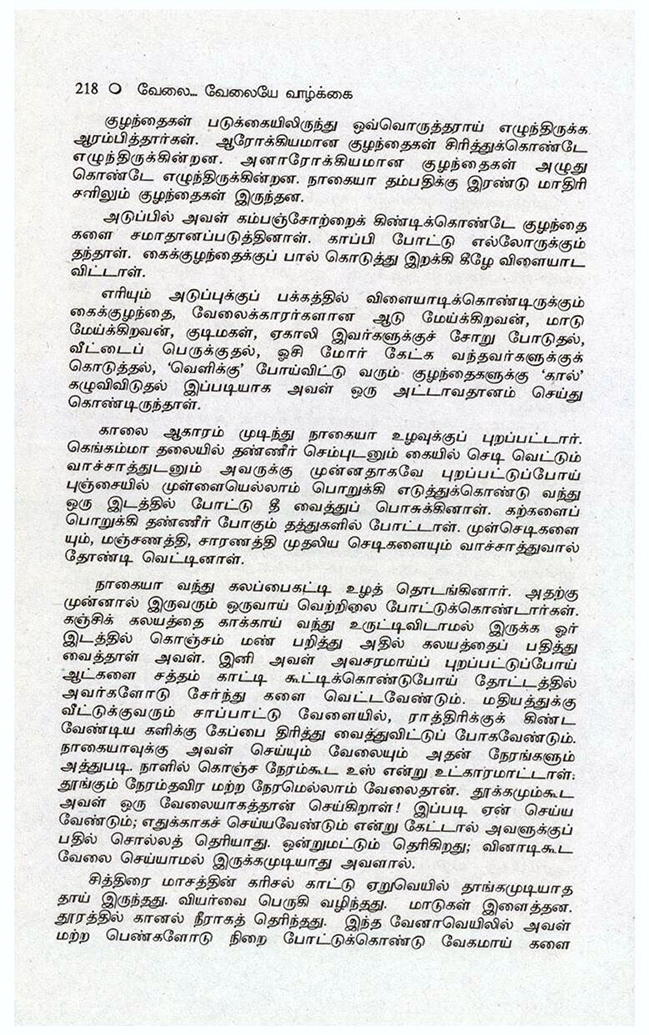 218 O வேலை... வேலையே வாழ்க்கை
குழந்தைகள் படுக்கையிலிருந்து ஒவ்வொருத்தராய் எழுந்திருக்க
ஆரம்பித்தார்கள். ஆரோக்கியமான குழந்தைகள் சிரித்துக்கொண்டே
எழுந்திருக்கின்றன. அனாரோக்கியமான குழந்தைகள் அழுது
கொண்டே எழுந்திருக்கின்றன. நாகையா தம்பதிக்கு இரண்டு மாதிரி
களிலும் குழந்தைகள் இருந்தன.
அடுப்பில் அவள் கம்பஞ்சோற்றைக் கிண்டிக்கொண்டே குழந்தை
களை சமாதானப்படுத்தினாள். காப்பி போட்டு எல்லோருக்கும்
தந்தாள். கைக்குழந்தைக்குப் பால் கொடுத்து இறக்கி கீழே விளையாட
விட்டாள்.
எரியும் அடுப்புக்குப் பக்கத்தில் விளையாடிக்கொண்டிருக்கும்
கைக்குழந்தை, வேலைக்காரர்களான ஆடு மேய்க்கிறவன், மாடு
மேய்க்கிறவன், குடிமகள், ஏகாலி இவர்களுக்குச் சோறு போடுதல்,
வீட்டைப் பெருக்குதல், ஓசி மோர் கேட்க வந்தவர்களுக்குக்
கொடுத்தல், 'வெளிக்கு' போய்விட்டு வரும் குழந்தைகளுக்கு 'கால்'
கழுவிவிடுதல் இப்படியாக அவள் ஒரு அட்டாவதானம் செய்து
கொண்டிருந்தாள்.
காலை ஆகாரம் முடிந்து நாகையா உழவுக்குப் புறப்பட்டார்.
கெங்கம்மா தலையில் தண்ணீர் செம்புடனும் கையில் செடி வெட்டும்
வாச்சாத்துடனும் அவருக்கு முன்னதாகவே புறப்பட்டுப்போய்
புஞ்சையில் முள்ளையெல்லாம் பொறுக்கி எடுத்துக்கொண்டு வந்து
ஒரு இடத்தில் போட்டு தீ வைத்துப் பொசுக்கினாள். கற்களைப்
பொறுக்கி தண்ணீர் போகும் தத்துகளில் போட்டாள். முள்செடிகளை
யும், மஞ்சணத்தி, சாரணத்தி முதலிய செடிகளையும் வாச்சாத்துவால்
தோண்டி வெட்டினாள்.
நாகையா வந்து கலப்பைகட்டி உழத் தொடங்கினார். அதற்கு
முன்னால் இருவரும் ஒருவாய் வெற்றிலை போட்டுக்கொண்டார்கள்.
கஞ்சிக் கலயத்தை காக்காய் வந்து உருட்டிவிடாமல் இருக்க ஓர்
இடத்தில் கொஞ்சம் மண் பறித்து அதில் கலயத்தைப் பதித்து
வைத்தாள் அவள். இனி அவள் அவசரமாய்ப் புறப்பட்டுப்போய்
ஆட்களை சத்தம் காட்டி கூட்டிக்கொண்டுபோய் தோட்டத்தில்
அவர்களோடு சேர்ந்து களை வெட்டவேண்டும். மதியத்துக்கு
வீட்டுக்குவரும் சாப்பாட்டு வேளையில், ராத்திரிக்குக் கிண்ட
வேண்டிய களிக்கு கேப்பை திரித்து வைத்துவிட்டுப் போகவேண்டும்.
நாகையாவுக்கு அவள் செய்யும் வேலையும் அதன் நேரங்களும்
அத்துபடி. நாளில் கொஞ்ச நேரம்கூட உஸ் என்று உட்காரமாட்டாள்:
தூங்கும் நேரம்தவிர மற்ற நேரமெல்லாம் வேலைதான். தூக்கமும்கூட
அவள் ஒரு வேலையாகத்தான் செய்கிறாள்! இப்படி ஏன் செய்ய
வேண்டும்; எதுக்காகச் செய்யவேண்டும் என்று கேட்டால் அவளுக்குப்
பதில் சொல்லத் தெரியாது. ஒன்றுமட்டும் தெரிகிறது; வினாடிகூட
வேலை செய்யாமல் இருக்கமுடியாது அவளால்.
சித்திரை மாசத்தின் கரிசல் காட்டு ஏறுவெயில் தாங்கமுடியாத
தாய் இருந்தது. வியர்வை பெருகி வழிந்தது. மாடுகள் இளைத்தன.
தூரத்தில் கானல் நீராகத் தெரிந்தது. இந்த வேனாவெயிலில் அவள்
மற்ற பெண்களோடு நிறை போட்டுக்கொண்டு வேகமாய் களை